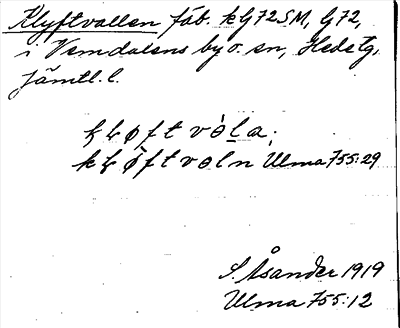 Klyftvallen fäb. k G72SM, G72,
i Vemdalens by o. sn, Hedetg,
Jämtl. l.
kḷøft vòla;
kḷøftvoln Ulma 755:29
S. Åsander 1919
Ulma 755:12